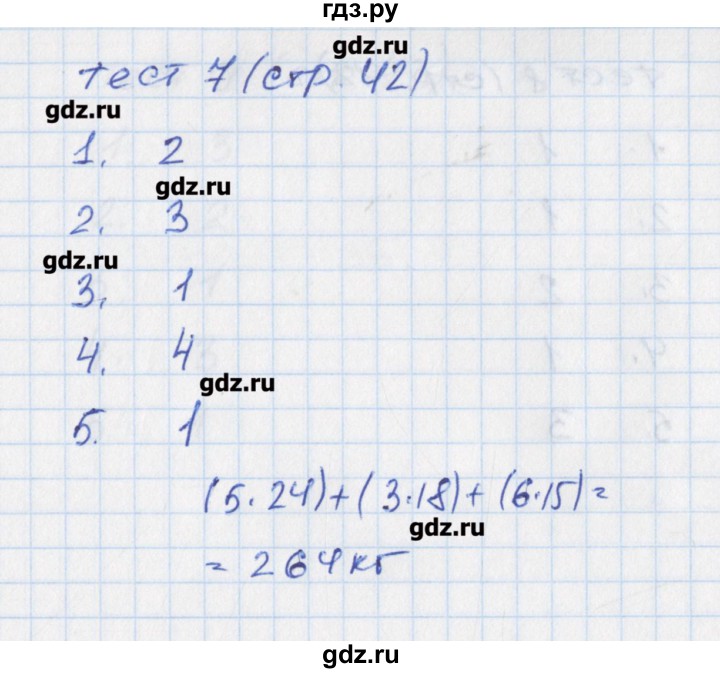 гдз.ру
gdz.ru
тест 7 (стр. 42)
gdz.ru
1. 2
gdz.ru
2. 3
gdz.ru
3. 1
4. 4
gdz.ru
5. 1
(5·24)+(3·18)+(6·15)=
gdz.ru
= 264кг
gdz.ru